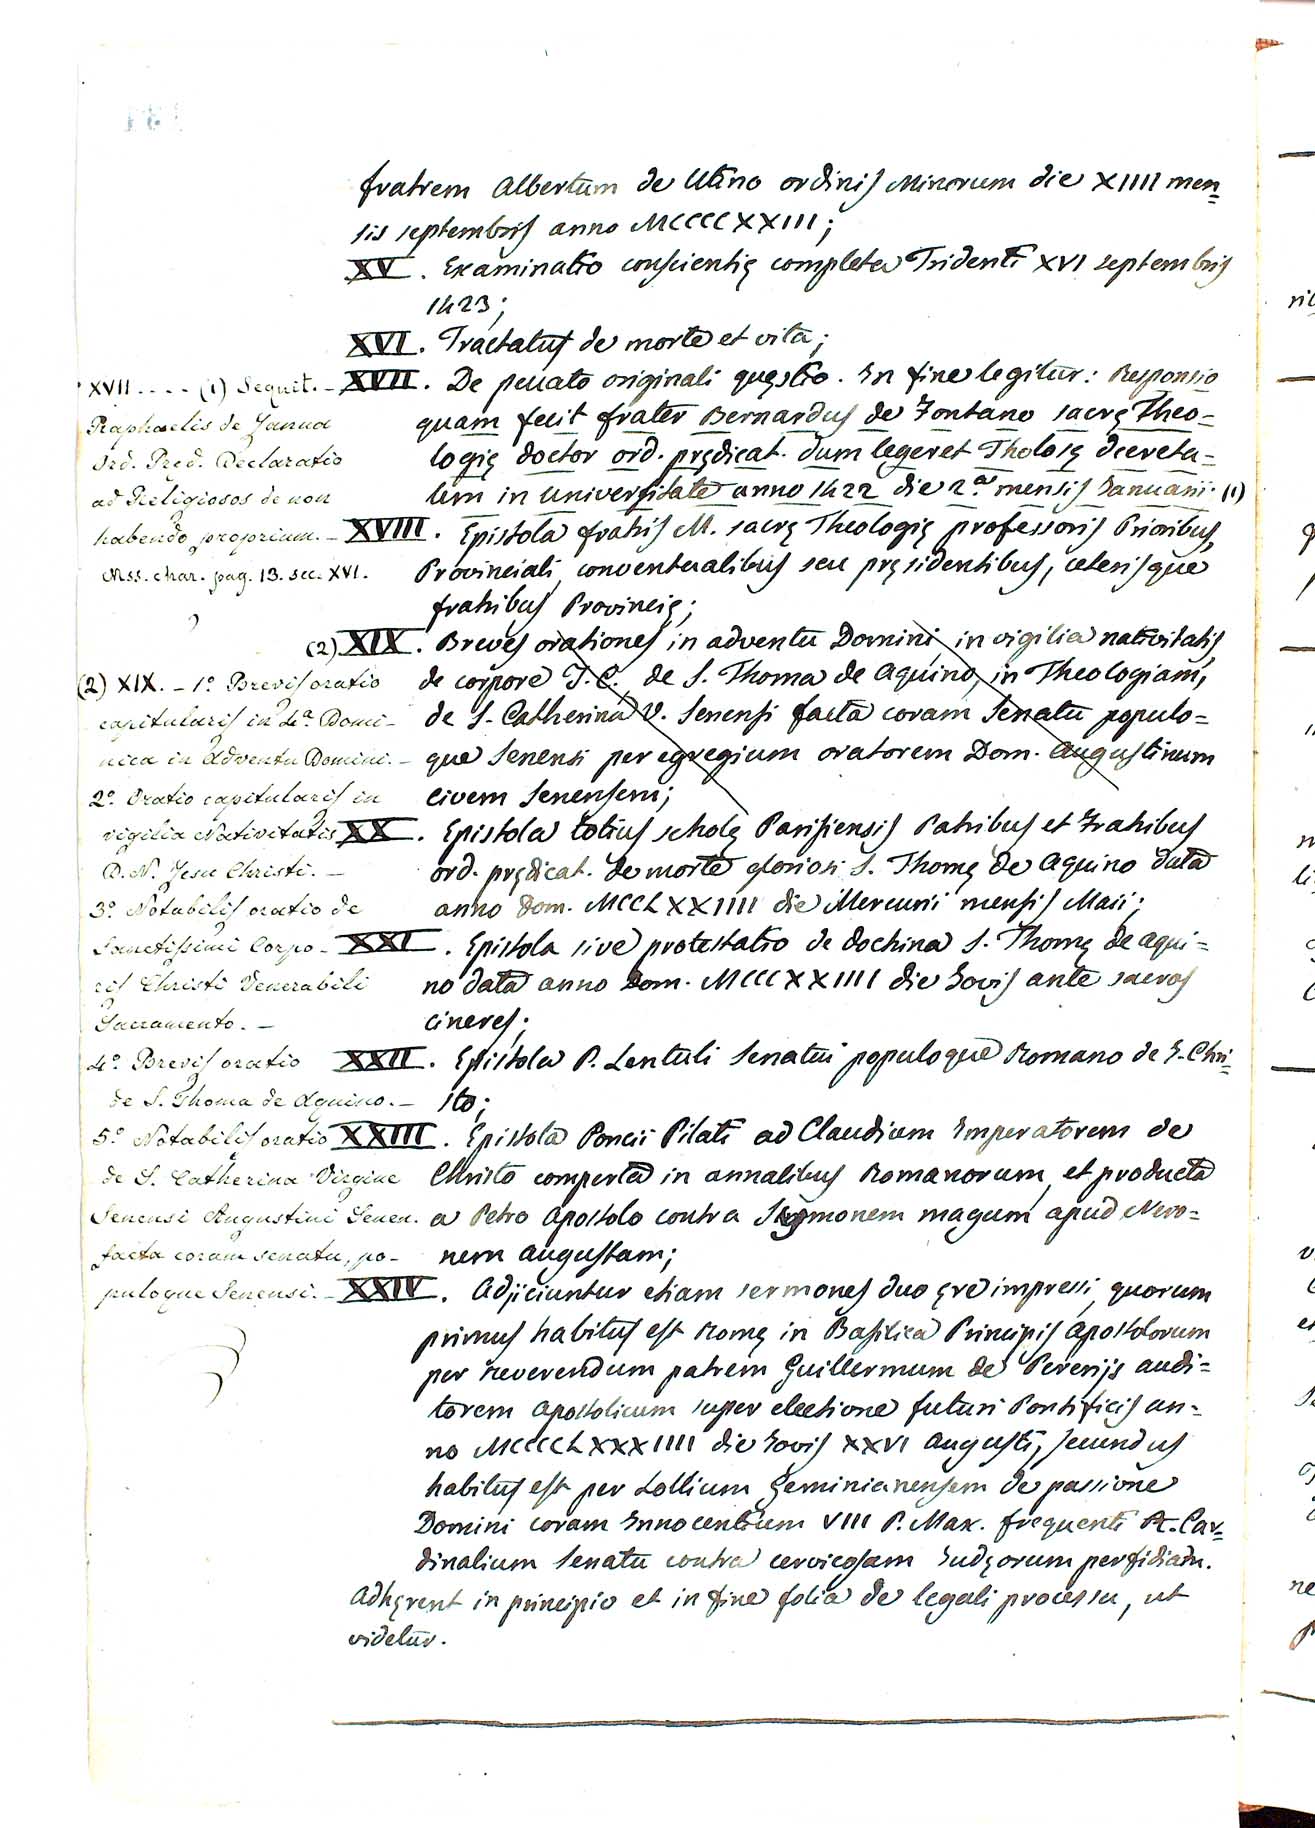 fratrem Albertum de Utino ordinis Minorum die XIIII men=
sis septembris anno MCCCCXXIII;
XV. Examinatio conscientię completa Tridenti XVI septembris
1423;
XVI. Tractatus de morte et vita;
XVII. De peccato originali quęstio. In fine legitur: Responsio
quam fecit frater Bernardus de Fontano sacrę Theo=
logię doctor ord. prędicat. dum legeret Tholosę decreta=
lem in universitate anno 1422 die 2.ª mensis Januarii. (1)
XVIII. Epistola fratris M. sacrę Theologię professoris Prioribus,
Provinciali, conventualibus seu pręsidentibus, ceterisque
fratribus Provincię;
(2) XIX. Breves orationes in adventu Domini, in vigilia nativitatis,
de corpore J. C., de S. Thoma de Aquino, in Theologiam,
de S. Catherina V. Senensi facta coram Senatu populo=
que Senensi per egregium oratorem Dom. Augustinum
civem Senensem;
XX. Epistola totius scholę Parisiensis Patribus et Fratribus
ord. prędicat. de morte gloriosi S. Thomę de Aquino data
anno Dom. MCCLXXIIII die Mercurii mensis Maii;
XXI. Epistola sive protestatio de doctrina S. Thomę de Aqui=
no data anno Dom. MCCCXXIIII die Jovis ante sacros
cineres;
XXII. Epistola P. Lentuli Senatui populoque Romano de J. Chri=
sto;
XXIII. Epistola Poncii Pilati ad Claudium Imperatorem de
Christo comperta in annalibus Romanorum, et producta
a Petro Apostolo contra Symonem magum apud Nero=
nem Augustam;
XXIV. Adjiciuntur etiam sermones duo ęre impressi, quorum
primus habitus est Romę in Basilica Principis Apostolorum
per reverendum patrem Guillermum de Pererijs audi=
torem Apostolicum super electione futuri Pontificis an=
no MCCCCLXXXIIII die Jovis XXVI Augusti, secundus
habitus est per Lollium Geminianensem de passione
Domini coram Innocentium VIII P. Max. frequenti R. Car=
dinalium Senatu contra cervicosam Judęorum perfidiam.
Adhęrent in principio et in fine folia de legali processu, ut
videtur.
XVII.... (1) Sequit. -
Raphaelis de Janua
Ord. Pred. Declaratio
ad Religiosos de non
habendo proprium. -
Mss. char. pag. 13. sec. XVI.
(2) XIX. - 1.º Brevis oratio
capitularis in 4.ª Domi-
nica in Adventu Domini. -
2.º Oratio capitularis in
vigilia Nativitatis
D. N. Jesu Christi. -
3.º Notabilis oratio de
Sanctissimi Corpo-
ris Christi Venerabili
Sacramento. -
4.º Brevis oratio
de S. Thoma de Aquino. -
5.º Notabilis oratio
de S. Catherina Virgine
Senensi Augustini Senen.
facta coram senatu, po-
puloque Senensi. -